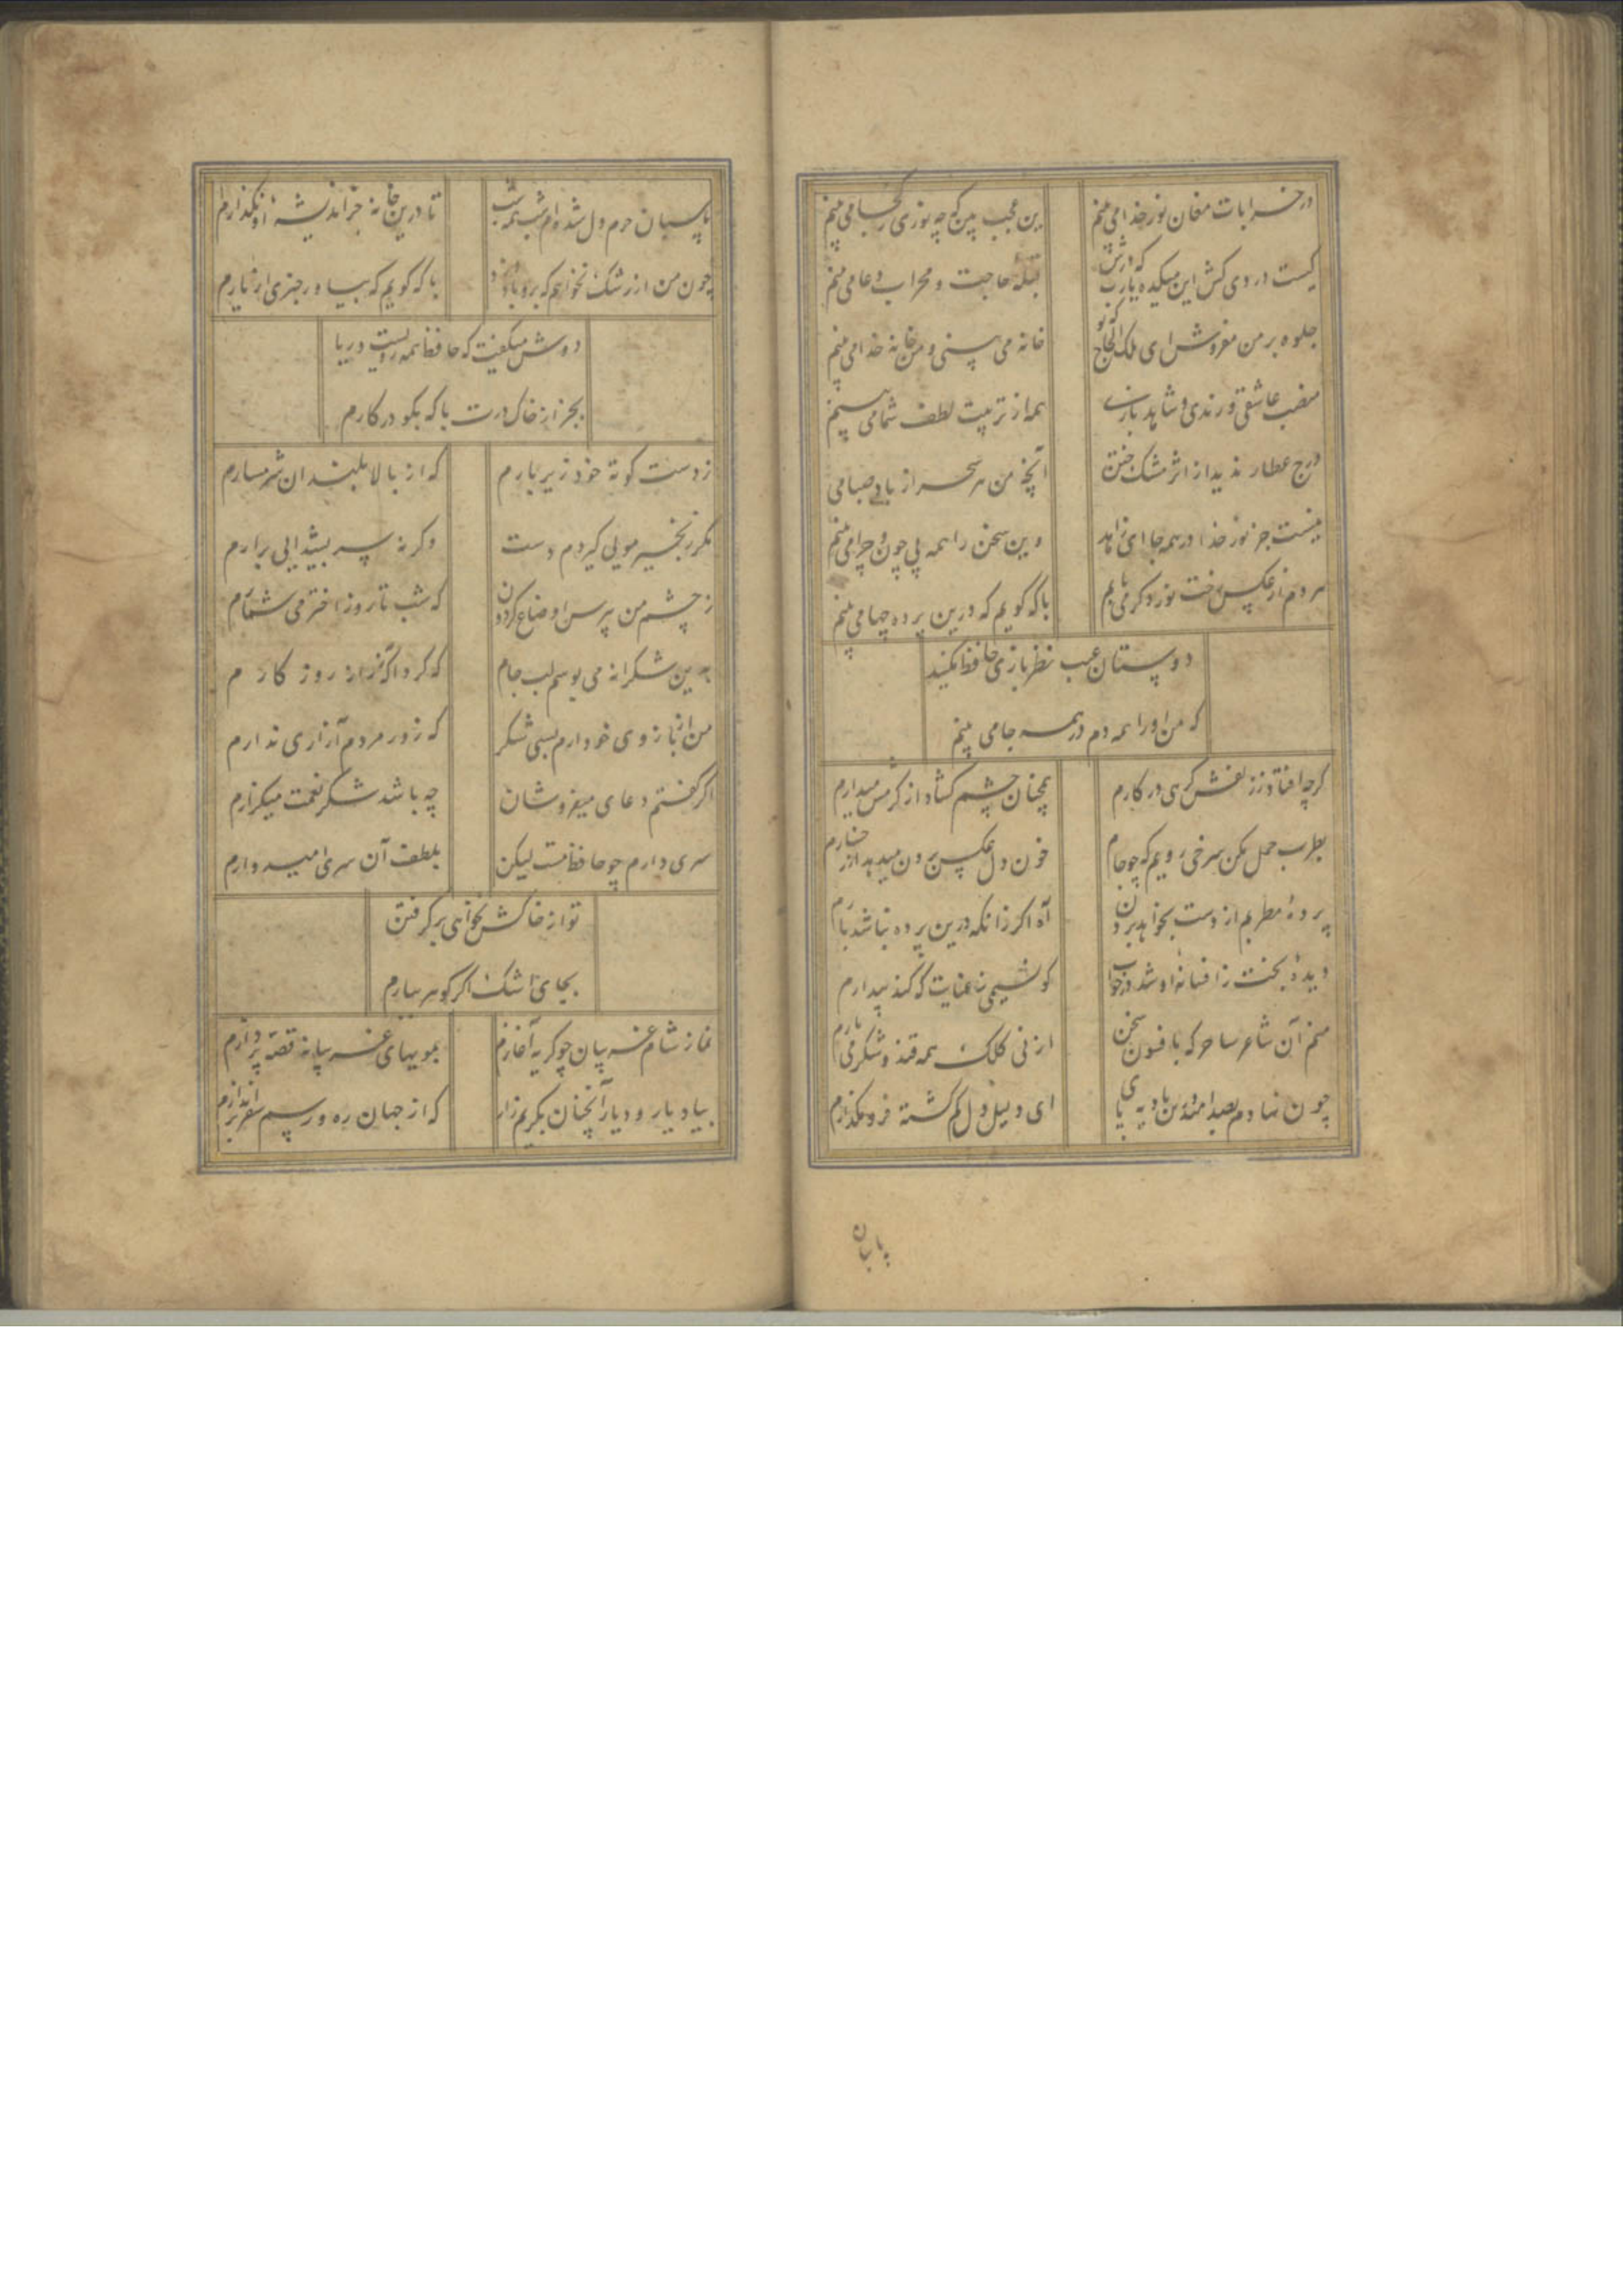 در خرابات مغان نور خدا می بینم
این عجب بین که چه نوری ز کجا می بینم
کیست دردی کش این میکده یارب که درش
قبله حاجت و محراب دعا می بینم
جلوه بر من مفروش ای ملک الحاج که تو
خانه می بینی و من خانه خدا می بینم
منصب عاشقی و رندی و شاهد بازی
همه از تربیت لطف شما می بینم
درج عطار ندید از اثر مشک ختن
آنچه من هر سحر از باد صبا می
نیست جز نور خدا در همه جا ای زاهد
وین سخن را همه بی چون و چرا می بینم
هر دم از عکس رخت نور دکر می یابم
با که کویم که درین پرده چها می بینم
دوستان عیب نظربازی حافظ مکنید
که من او را همه دم در همه جا می بینم
کرچه افتاد ز زلفش کرهی در کارم
همچنان چشم کشاد از کرمش میدارم
بطرب حمل مکن سرخی رویم که چو جام
خون دل عکس برون میدهد از رخسارم
پرده مطربم از دست بخواهد بردن
آه اکر زانکه درین پرده نباشد بارم
دیده بخت ز افسانه او شد در خواب
کو نسیمی ز عنایت که کند بیدارم
منم آن شاعر ساحر که بافسون سخن
از نی کلک همه قند و شکر می بارم
چون نهادم بصد امید درین بادیه پای
ای دلیل دل کم کشته فرو مکذارم
پاسبان
پاسبان حرم دل شده ام شب همه شب
تا درین خانه جز اندیشه او نکذارم
چون من از رشک نخواهم که برو باد وزد
با که کویم که بیا و خبری از یارم
دوش میکفت که حافظ همه رویست و ریا
بجز از خاک درت با که بکو در کارم
ز دست کوته خود زیر بارم
که از بالا بلندان شرمسارم
مکر زنجیر مویی کیردم دست
وکر نه سر بشیدایی برارم
ز چشم من پرس اوضاع کردون
که شب تا روز اختر می شمارم
بدین شکرانه می بوسم لب جام
که کرد آکه ز راز روز کارم
من از بازوی خود دارم بسی شکر
که زور مردم آزاری ندارم
اکر کفتم دعای میفروشان
چه باشد شکر نعمت میکزارم
سری دارم چو حافظ مست لیکن
بلطف آن سری امیدوارم
تو از خاکش نخواهی بر کرفتن
بجای اشک اکر کوهر ببارم
نماز شام غریبان چو کریه آغازم
بمویهای غریبانه قصه پردازم
بیاد یار و دیار آنچنان بکریم زار
که از جهان ره و رسم سفر براندازم